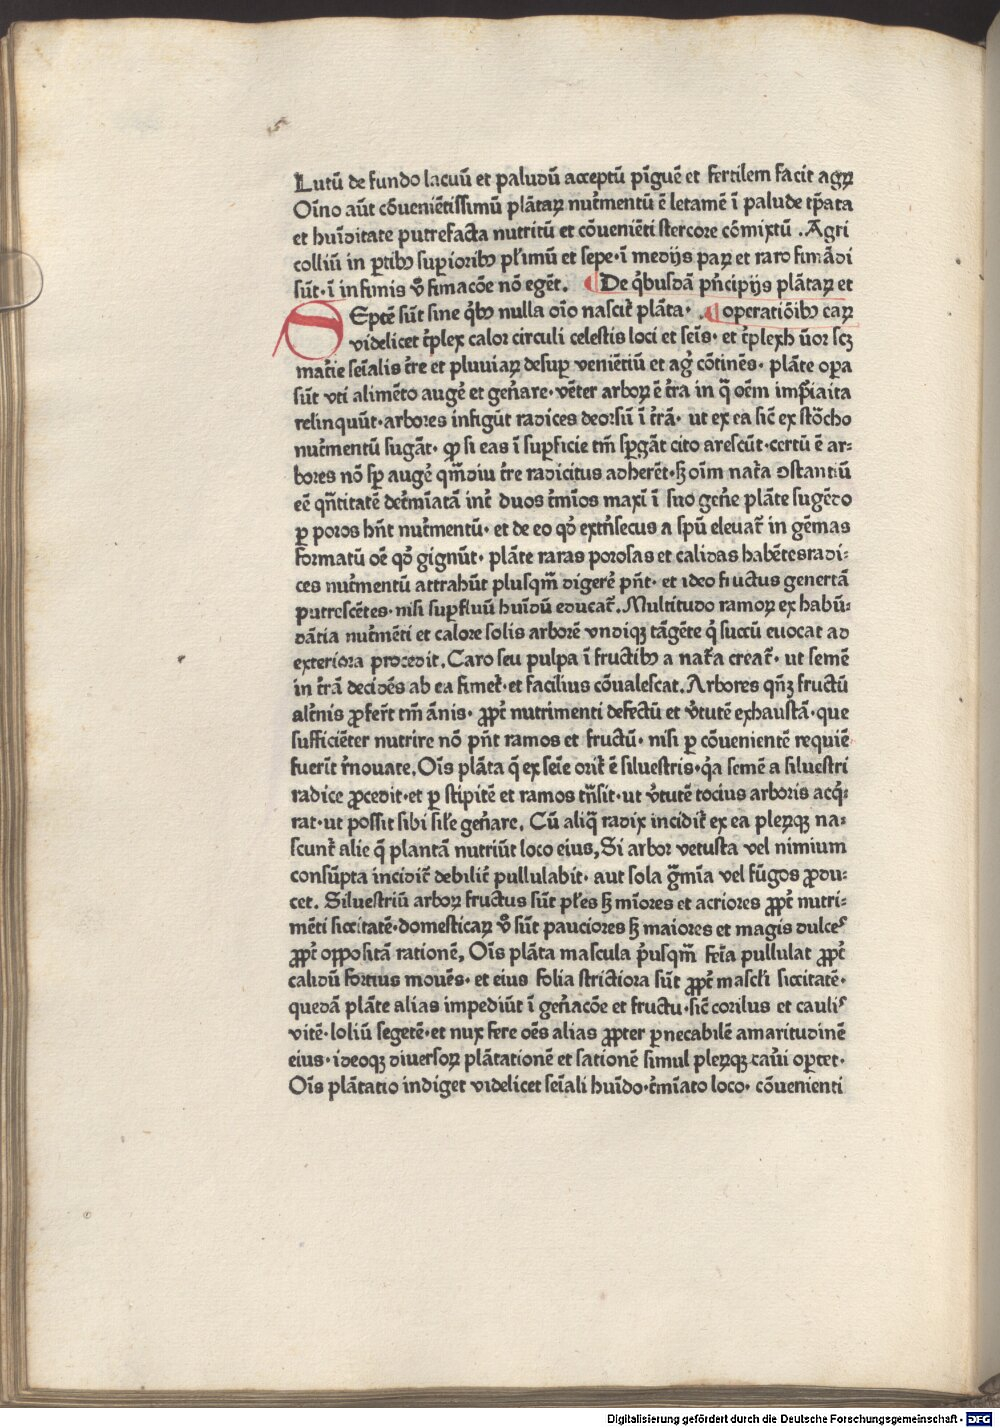 Lutū de fundo lacuū et paludū acceptū pīguē et fertilem facit agꝝ
Oīno aūt cōueniētissimū plātaꝝ nutͥmentū ē letamē ī palude tp̄ata
et huīditate putrefacta nutritū et cōueniēti stercore cōmixtū . Agri
colliū in ꝑtibꝰ suꝑioribꝰ pl̄imū et sepe · ī medijs paꝝ et raro fimādi
sūt · ī infimis ꝟo fimacōe nō egēt . ¶ De q̇busdā pͥncipijs plātaꝝ et
SEptē sūt sine q̇bꝰ nulla oīo nascit᷑ plāta · . ¶ operatiōibꝰ eaꝝ
videlicet tͥplex calor circuli celestis loci et seīs · et tͥplexh ūor scꝫ
mat̄ie seīalis tͥre et pluuiaꝝ desuꝑ veniētiū et agͥ cōtinēs · plāte oꝑa
sūt vti alimēto augē et gen̄are · vēter arboꝝ ē tͥra in q̄ oēm imp̄iaita
relinquūt · arbores infigūt radices deorsū ī tͥrā · ut ex ea sic̄ ex stōcho
nutͥmentū sugāt · ꝙ si eas ī suꝑficie tm̄ sꝑgāt cito arescūt · certū ē ar⸗
bores nō sꝑ augē qm̄diu tͥre radicitus adherēt · sꝫ oīm nat᷑a ꝯstantiū
eē qn̄titatē det̄mīatā int᷑ duos t̄mīos maxī ī suo gen̄e plāte sugēdo
ꝑ poros hn̄t nutͥmentū · et de eo qd̓ extͥnsecus a spū eleuat᷑ in gēmas
formatū oē qd̓ gignūt · plāte raras porosas et calidas habētesradi⸗
ces nutͥmentū attrahūt plusqm̄ digerē pn̄t · et ideo fructus genertā
putrescētes · nisi suꝑfluū huīdū educat᷑ . Multitudo ramoꝝ ex habū⸗
dātia nutͥmēti et calore solis arborē vndiqꝫ tāgēte q̇ succū euocat ad
exteriora procedit . Caro seu pulpa ī fructibꝰ a nat᷑a creat᷑ · ut semē
in tͥrā decidēs ab ea fimet᷑ · et facilius cōualescat . Arbores qn̄qꝫ fructū
alt̄nis ꝓfer᷑t tm̄ ānis · ꝓpt᷑ nutrimenti defectū et ꝟtutē exhaustā · que
sufficiēter nutrire nō pn̄t ramos et fructū · nisi ꝑ cōuenientē requiē
fuerīt r̄nouate . Oīs plāta q̄ ex seīe orit᷑ ē siluestris · q̇a semē a siluestri
radice ꝓcedit · et ꝑ stipitē et ramos tn̄sit · ut ꝟtutē tocius arboris acq̇⸗
rat · ut possit sibi sil̄e gen̄are . Cū aliq̄ radix incidit᷑ ex ea pleꝝqꝫ na⸗
scunt᷑ alie q̄ plantā nutriūt loco eius , Si arbor vetusta vel nimium
consūpta incidit᷑ debilit᷑ pullulabit · aut sola gͣmīa vel fūgos ꝓdu⸗
cet . Siluestriū arboꝝ fructus sūt pl̄es sꝫ mīores et acriores ꝓpt᷑ nutri⸗
mēti siccitatē · domesticaꝝ ꝟo sūt pauciores sꝫ maiores et magis dulceˢ
ꝓpt᷑ oppositā rationē , Oīs plāta mascula pͥusqm̄ feīa pullulat ꝓpt᷑
calidū fortius mouēs · et eius folia strictiora sūt ꝓpt᷑ mascl̓i siccitatē ·
quedā plāte alias impediūt ī gen̄acōe et fructu · sic̄ corilus et cauliˢ
vitē · loliū segetē · et nux fere oēs alias ꝓpter ꝑnecabilē amaritudinē
eius · ideoqꝫ diuersoꝝ plātationē et sationē simul pleꝝqꝫ cau̓i oꝑtet ·
Oīs plātatio indiget videlicet seīali huīdo · t̄mīato loco · cōuenienti
Digitalisierung gefördert durch die Deutsche Forschungsgemeinschaft - DFG